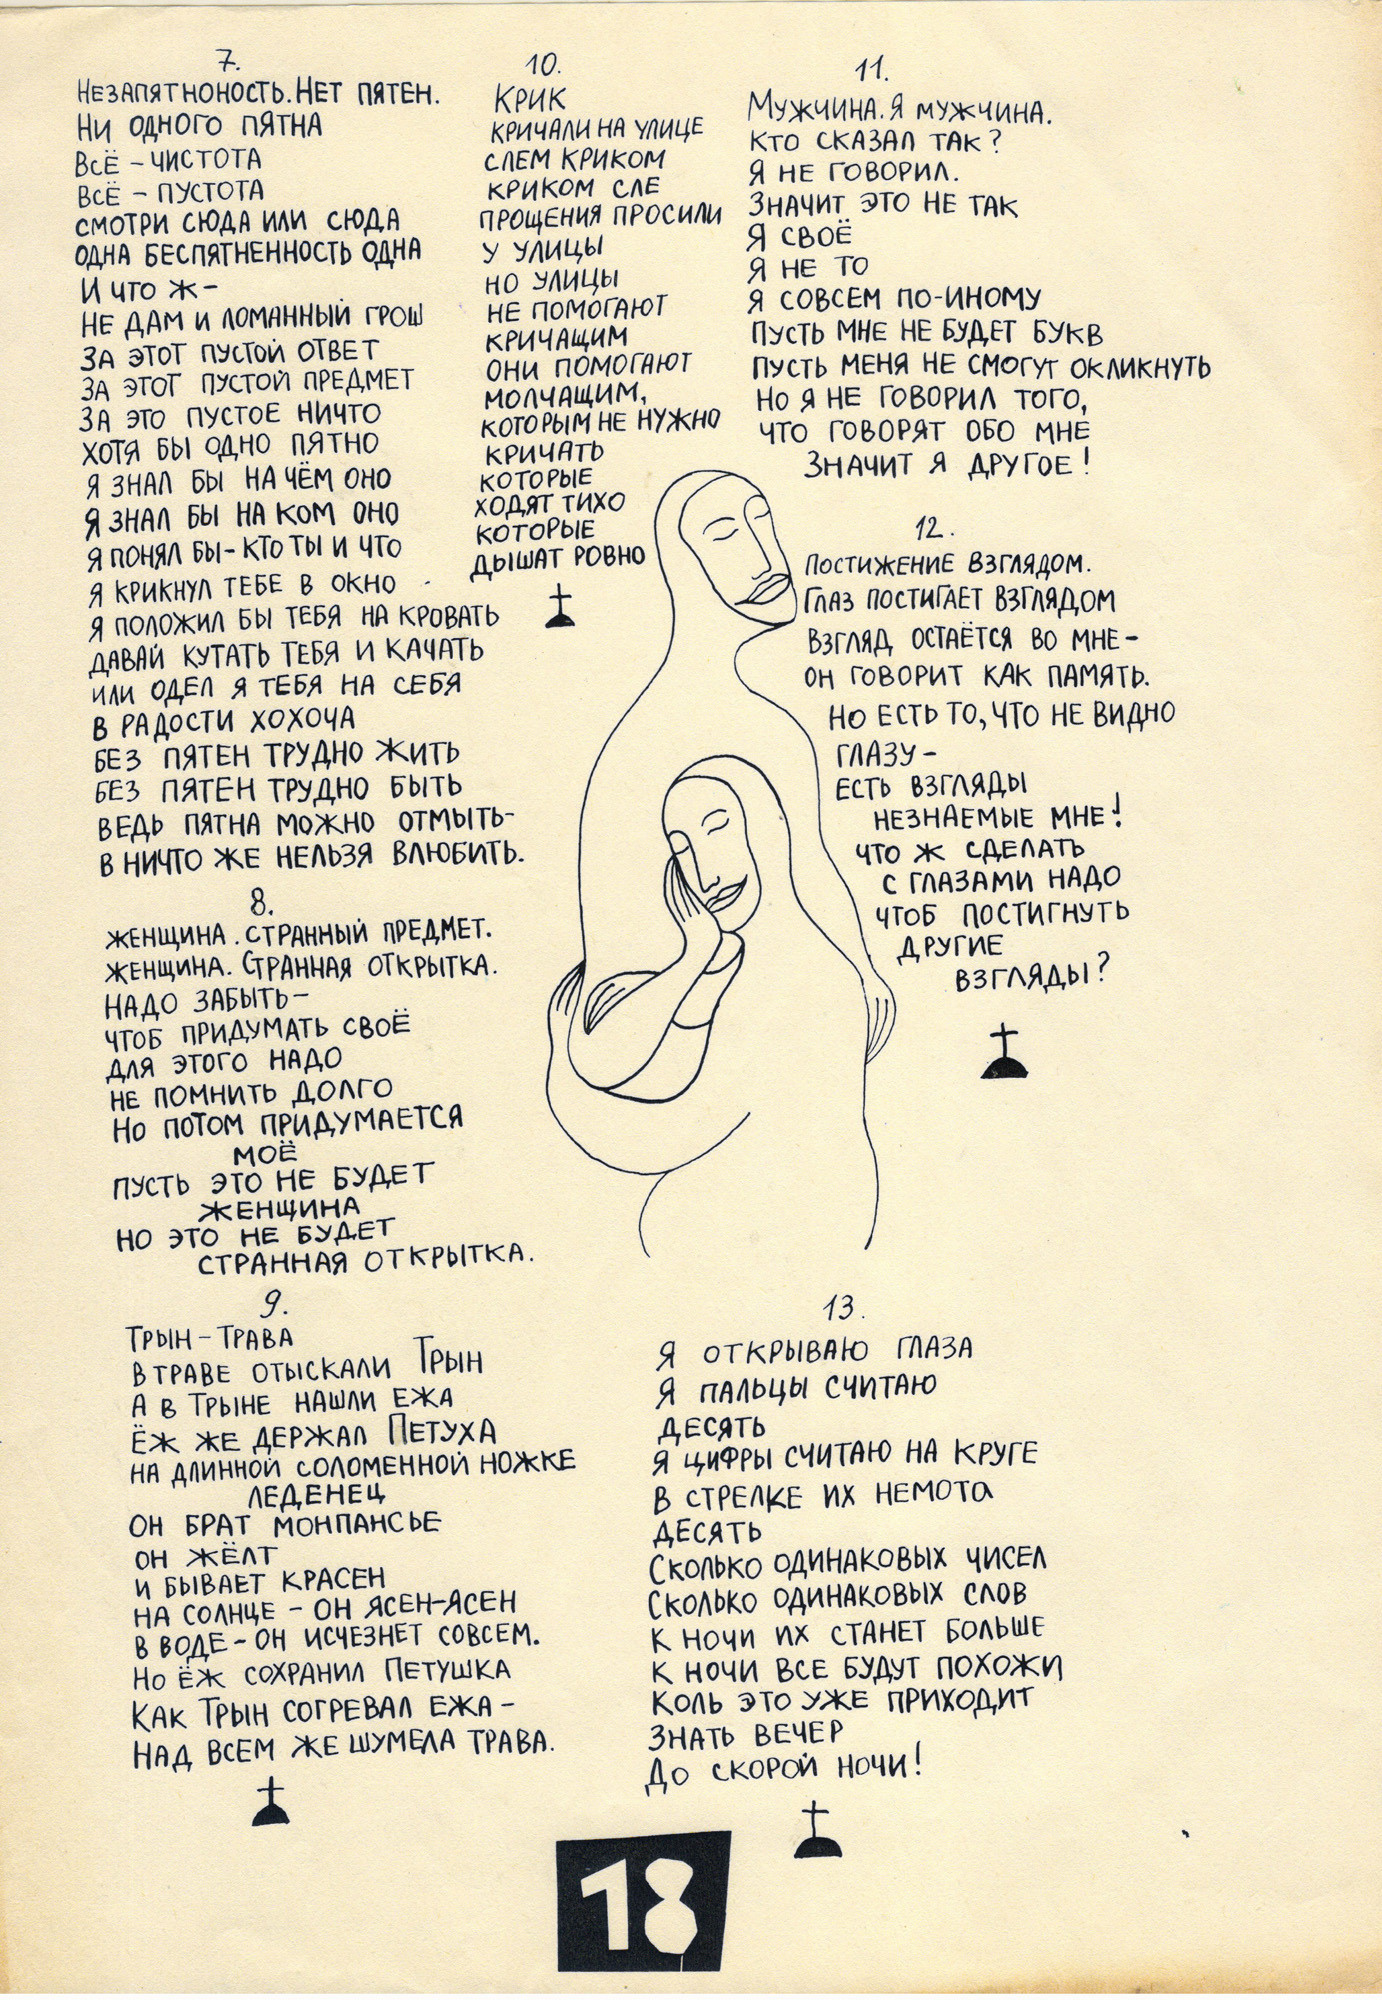 7.
Незапятноность. Нет пятен.
Ни одного пятна
Всё – чистота
Всё – пустота
смотри сюда или сюда
одна беспятненность одна
И что ж –
не дам и ломанный грош
за этот пустой ответ
за этот пустой предмет
за это пустое ничто
хотя бы одно пятно
я знал бы на чём оно
я знал бы на ком оно
я понял бы – кто ты и что
я крикнул тебе в окно
я положил бы тебя на кровать
давай кутать тебя и качать
или одел я тебя на себя
в радости хохоча
без пятен трудно жить
без пятен трудно быть
ведь пятна можно отмыть –
в ничто же нельзя влюбить.
8.
женщина. странный предмет.
женщина. Странная открытка.
надо забыть –
чтоб придумать своё
для этого надо
не помнить долго
но потом придумается
моё
пусть это не будет
женщина
но это не будет
странная открытка.
9.
Трын – трава
в траве отыскали Трын
а в Трыне нашли ежа
ёж же держал Петуха
на длинной соломенной ножке
леденец
он брат монпансье
он жёлт
и бывает красен
на солнце – он ясен-ясен
в воде – он исчезнет совсем.
Но ёж сохранил Петушка
Как Трын согревал ежа –
над всем же шумела трава.
10.
Крик
кричали на улице
слем криком
криком сле
прощения просили
у улицы
но улицы
не помогают
кричащим
они помогают
молчащим,
которым не нужно
кричать
которые
ходят тихо
которые
дышат ровно
11.
Мужчина. Я мужчина.
Кто сказал так?
Я не говорил.
Значит это не так
Я своё
Я не то
Я совсем по-иному
пусть мне не будет букв
пусть меня не смогут окликнуть
Но я не говорил того,
что говорят обо мне
значит я другое!
12.
Постижение взглядом.
Глаз постигает взглядом
взгляд остаётся во мне –
он говорит как память.
Но есть то, что не видно
глазу –
есть взгляды
незнаемые мне!
что ж сделать
с глазами надо
чтоб постигнуть
другие
взгляды?
13.
Я открываю глаза
Я пальцы считаю
десять
Я цифры считаю на круге
в стрелке их немота
десять
Сколько одинаковых чисел
Сколько одинаковых слов
к ночи их станет больше
к ночи все будут похожи
коль это уже приходит
знать вечер
До скорой ночи!
18